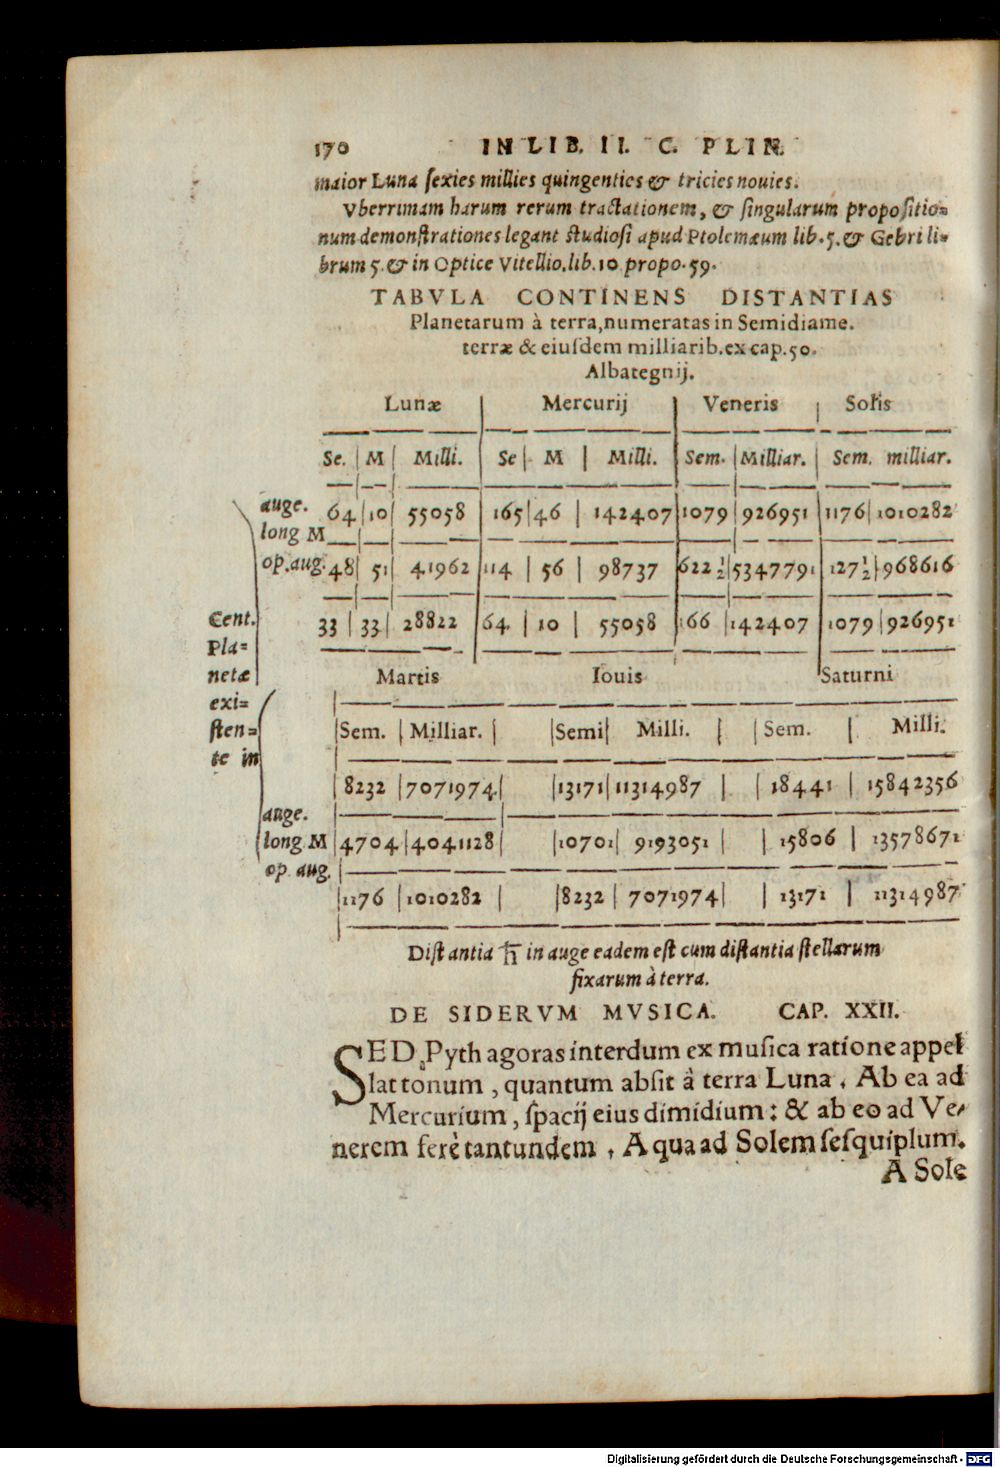 170 IN LIB. II. C. PLIN.
maior Luna sexies millies quingenties & tricies nouies.
Vberrimam harum rerum tractationem, & singularum propositio=
num demonstrationes legant studiosi apud Ptolemæum lib. 5. & Gebri li=
brum 5. & in Optice Vitellio. lib. 10 propo. 59.
TABVLA CONTINENS DISTANTIAS
Planetarum à terra, numeratas in Semidiame.
terræ & eiusdem milliarib. ex cap. 50.
Albategnij.
Lunæ | Mercurij | Veneris | Solis
Se. | M | Milli. | Se | M | Milli. | Sem. | Milliar. | Sem. milliar.
auge. 64 | 10 | 55058 | 165 | 46 | 142407 | 1079 | 926951 | 1176 | 1010282
long M
op. aug. 48 | 51 | 41962 | 114 | 56 | 98737 | 622 1/2 | 5347791 | 127 1/2 | 968616
Cent. 33 | 33 | 28822 | 64 | 10 | 55058 | 166 | 142407 | 1079 | 926951
Pla=
netæ Martis Iouis Saturni
exi=
sten= | Sem. | Milliar. | | Semi | Milli. | | Sem. | Milli.
te in
| 8232 | 7071974 | | 13171 | 11314987 | | 18441 | 15842356
auge.
long M | 4704 | 4041128 | | 10701 | 9193051 | | 15806 | 13578671
op. aug.
| 1176 | 1010282 | | 8232 | 7071974 | | 13171 | 11314987
Distantia ♄ in auge eadem est cum distantia stellarum
fixarum à terra.
DE SIDERVM MVSICA. CAP. XXII.
SED Pythagoras interdum ex musica ratione appel
lat tonum, quantum absit à terra Luna. Ab ea ad
Mercurium, spacij eius dimidium: & ab eo ad Ve-
nerem ferè tantundem, A qua ad Solem sesquiplum.
A Sole
Digitalisierung gefördert durch die Deutsche Forschungsgemeinschaft - DFG